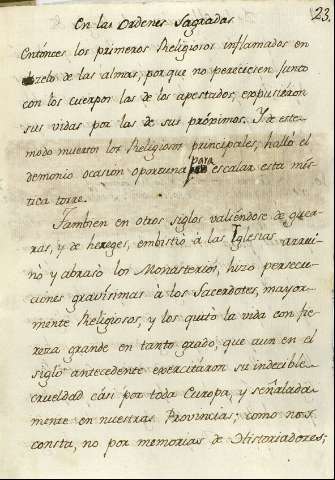 En las Ordenes Sagradas
23.
Entónces los primeros Religiosos inflamados en
zelo de las almas, porque no pereciesen junto
con los cuerpos las de los apestados, expusieron
sus vidas por las de sus próximos. Y de este
modo muertos los Religiosos principales, halló el
demonio ocasion oportuna para escalar esta mís-
tica torre.
Tambien en otros siglos valiéndose de guer-
ras, y de hereges, embistió à las Iglesias arrui-
nó y abrasó los Monasterios, hizo persecu-
ciones gravísimas à los Sacerdotes, mayor-
mente Religiosos, y los quitó la vida con fie-
reza grande en tanto grado, que aun en el
siglo antecedente exercitáron su indecible
crueldad cási por toda Europa, y señalada-
mente en nuestras Provincias; como nos
consta, no por memorias de Historiadores,